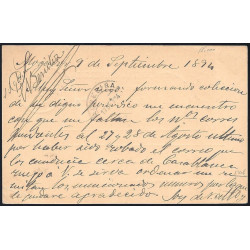 9 de Septiembre 1894
Muy Señor mio, formando coleccion
de su digno periódico me encuentro
con que me faltan los Nos corres
pondientes al 27 y 28 de Agosto ultimo
por haber sido robado el correo que
los conducia cerca de Casablanca
ruego á V. se sirva ordenar me re
mitan los mencionados numeros por
quedare agradecido